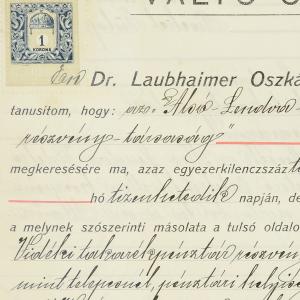 VÁLTÓ Ó
1
KORONA
Én Dr. Laubhaimer Oszká
tanusítom, hogy: az „Alsó-Lendvai
részvény-társaság"
megkeresésére ma, azaz egyezerkilenczszázt
hó tizenhetedik napján, de
a melynek szószerinti másolata a tulsó oldalo
Vidéki takarékpénztár részvény
mint telepesnél, pénztári helyisé